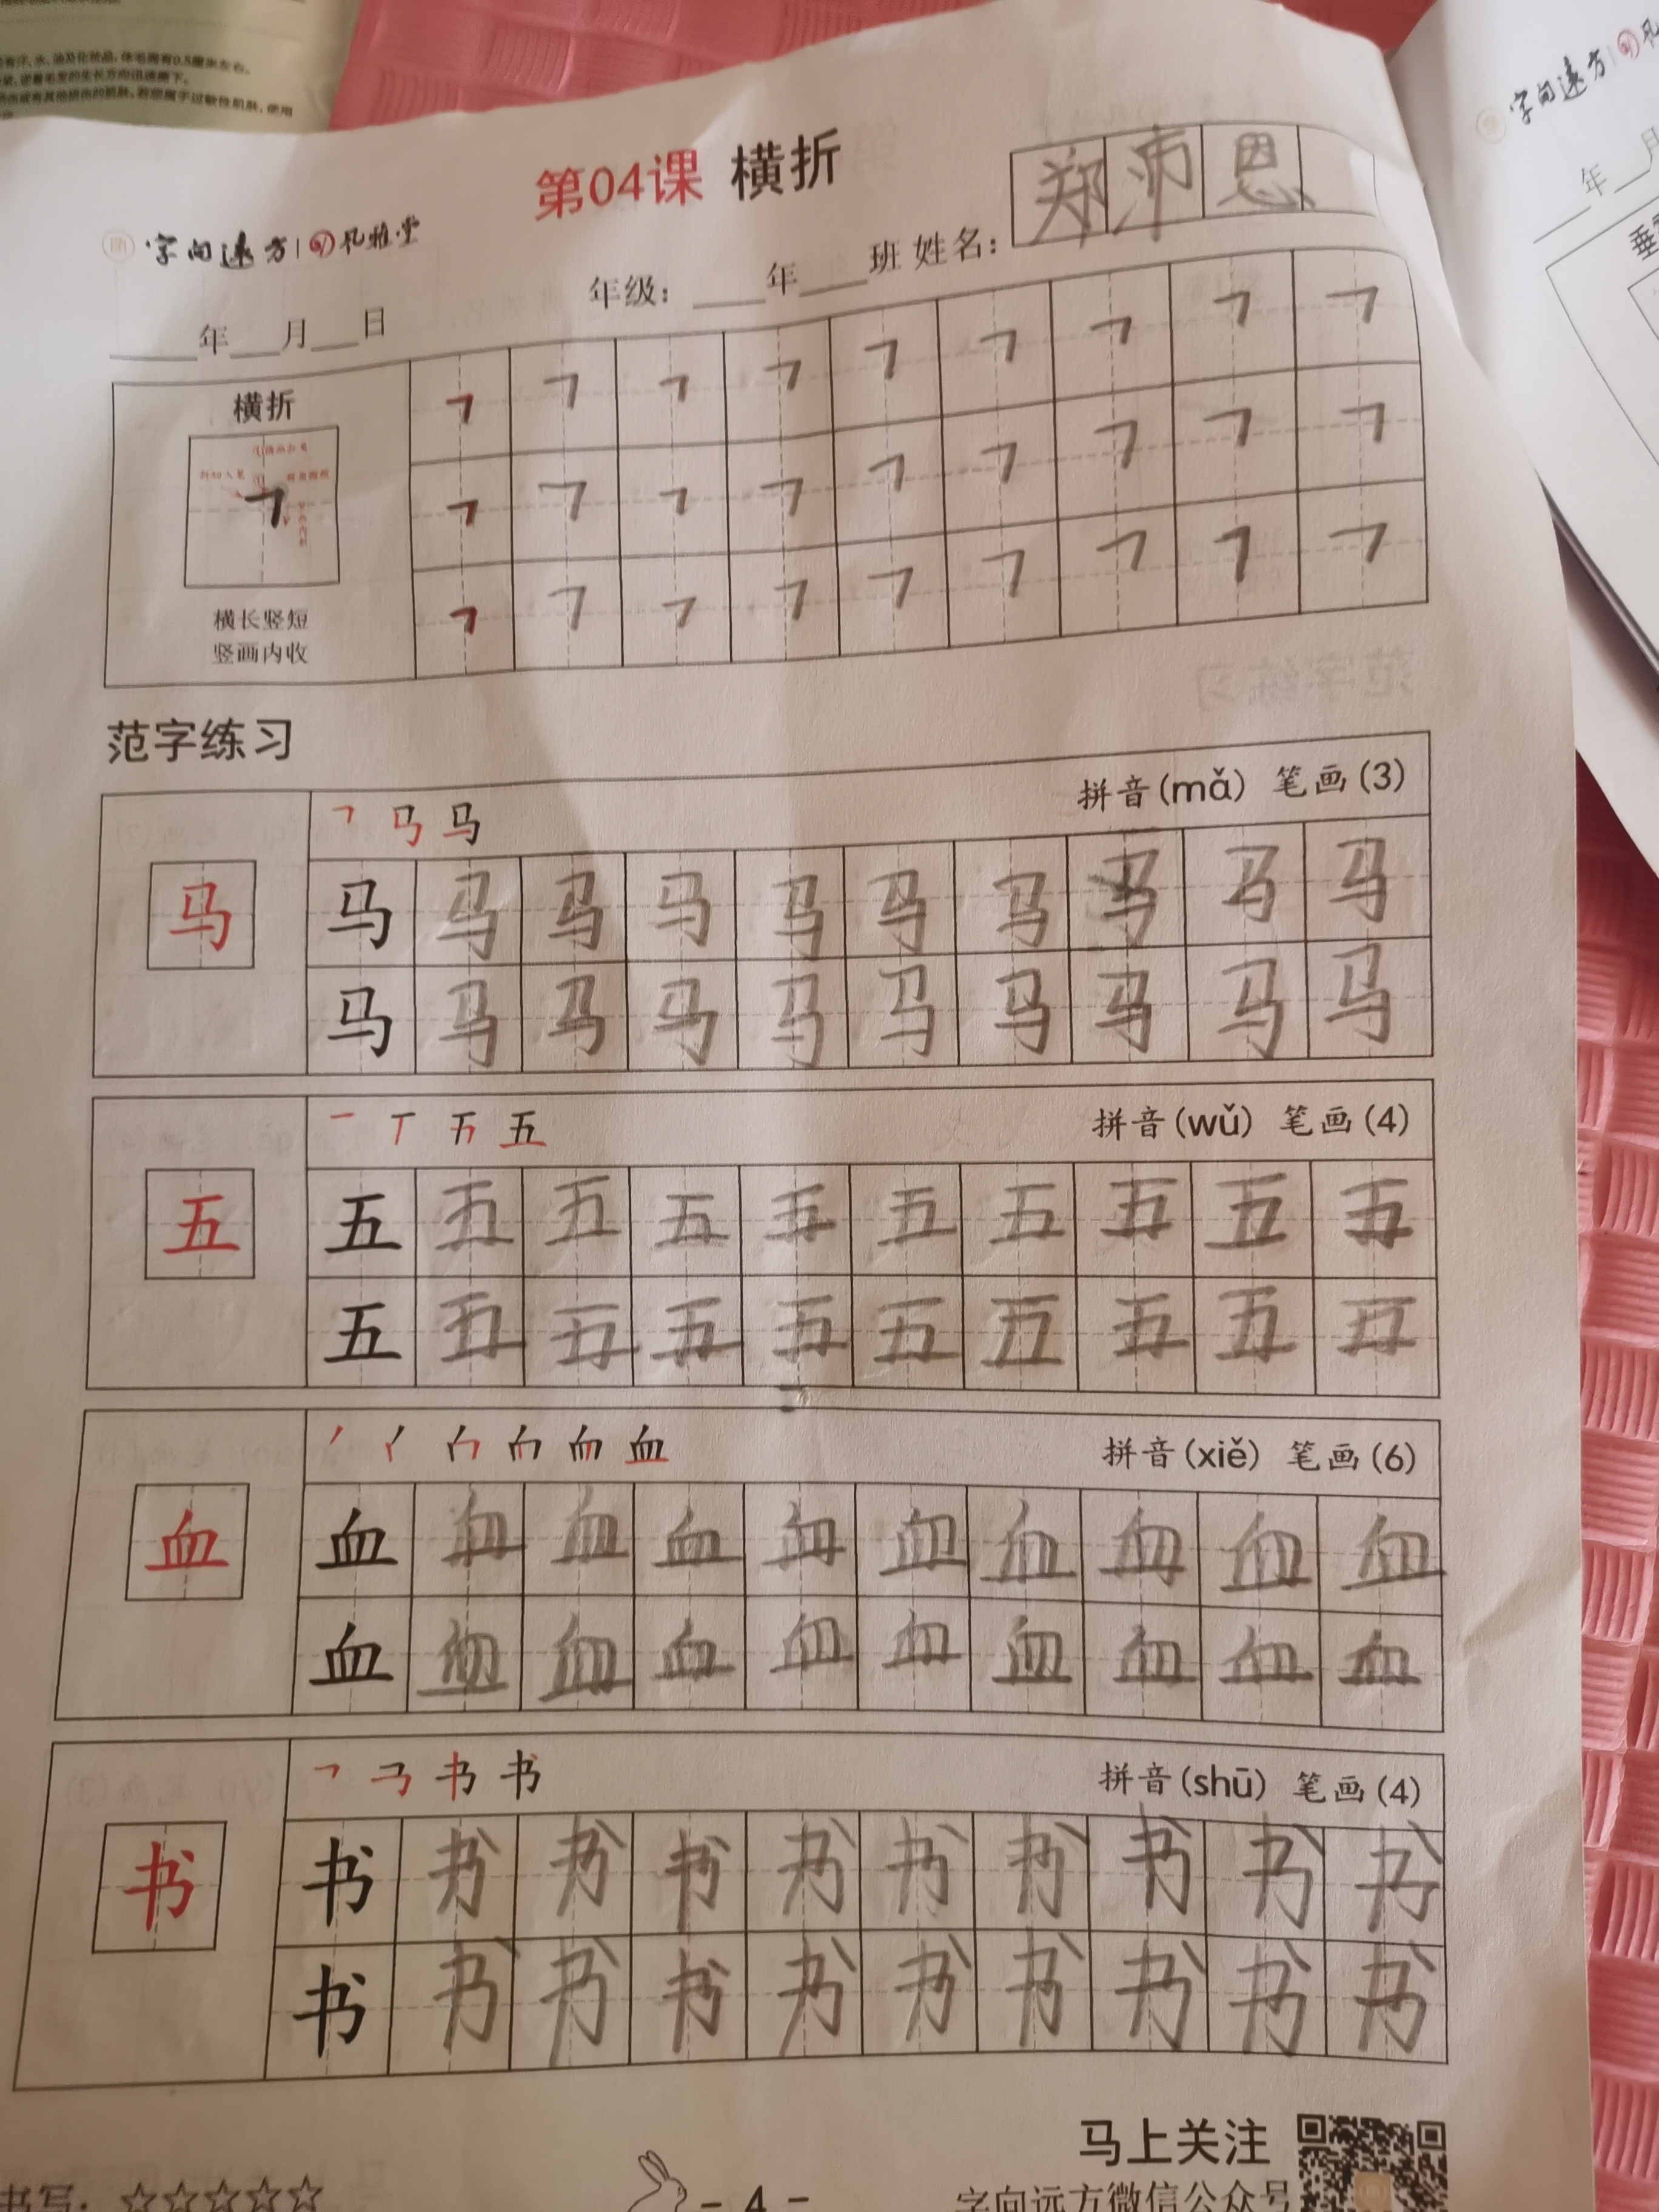 第04课 横折
字向远方 孔雅堂
年级: ____年____班 姓名: 郑沛恩
____年__月__日
横折
横长竖短
竖画内收
范字练习
拼音(mǎ) 笔画(3)
马 马 马 马 马 马 马 马 马 马 马
马 马 马 马 马 马 马 马 马 马
拼音(wǔ) 笔画(4)
五 五 五 五 五 五 五 五 五 五 五
五 五 五 五 五 五 五 五 五 五
拼音(xiě) 笔画(6)
血 血 血 血 血 血 血 血 血 血 血
血 血 血 血 血 血 血 血 血 血
拼音(shū) 笔画(4)
书 书 书 书 书 书 书 书 书 书 书
书 书 书 书 书 书 书 书 书 书
马上关注
书写: ☆☆☆☆☆
- 4 -
字向远方微信公众号
字向远方
年__月